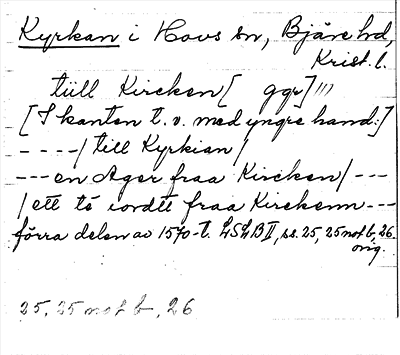 Kyrkan i Hovs sn, Bjäre hd,
Krist. l.
tiill Kircken [ ggr] ///
[I kanten t. v. med yngre hand:]
- - - -/ till Kyrkian /
--- en Ager fraa Kircken/ ---
/ ett té iordtt fraa Kirckenn ---
förra delen av 1570-t. LSLB II, ss. 25, 25 not b, 26.
orig.
25, 25 not b, 26